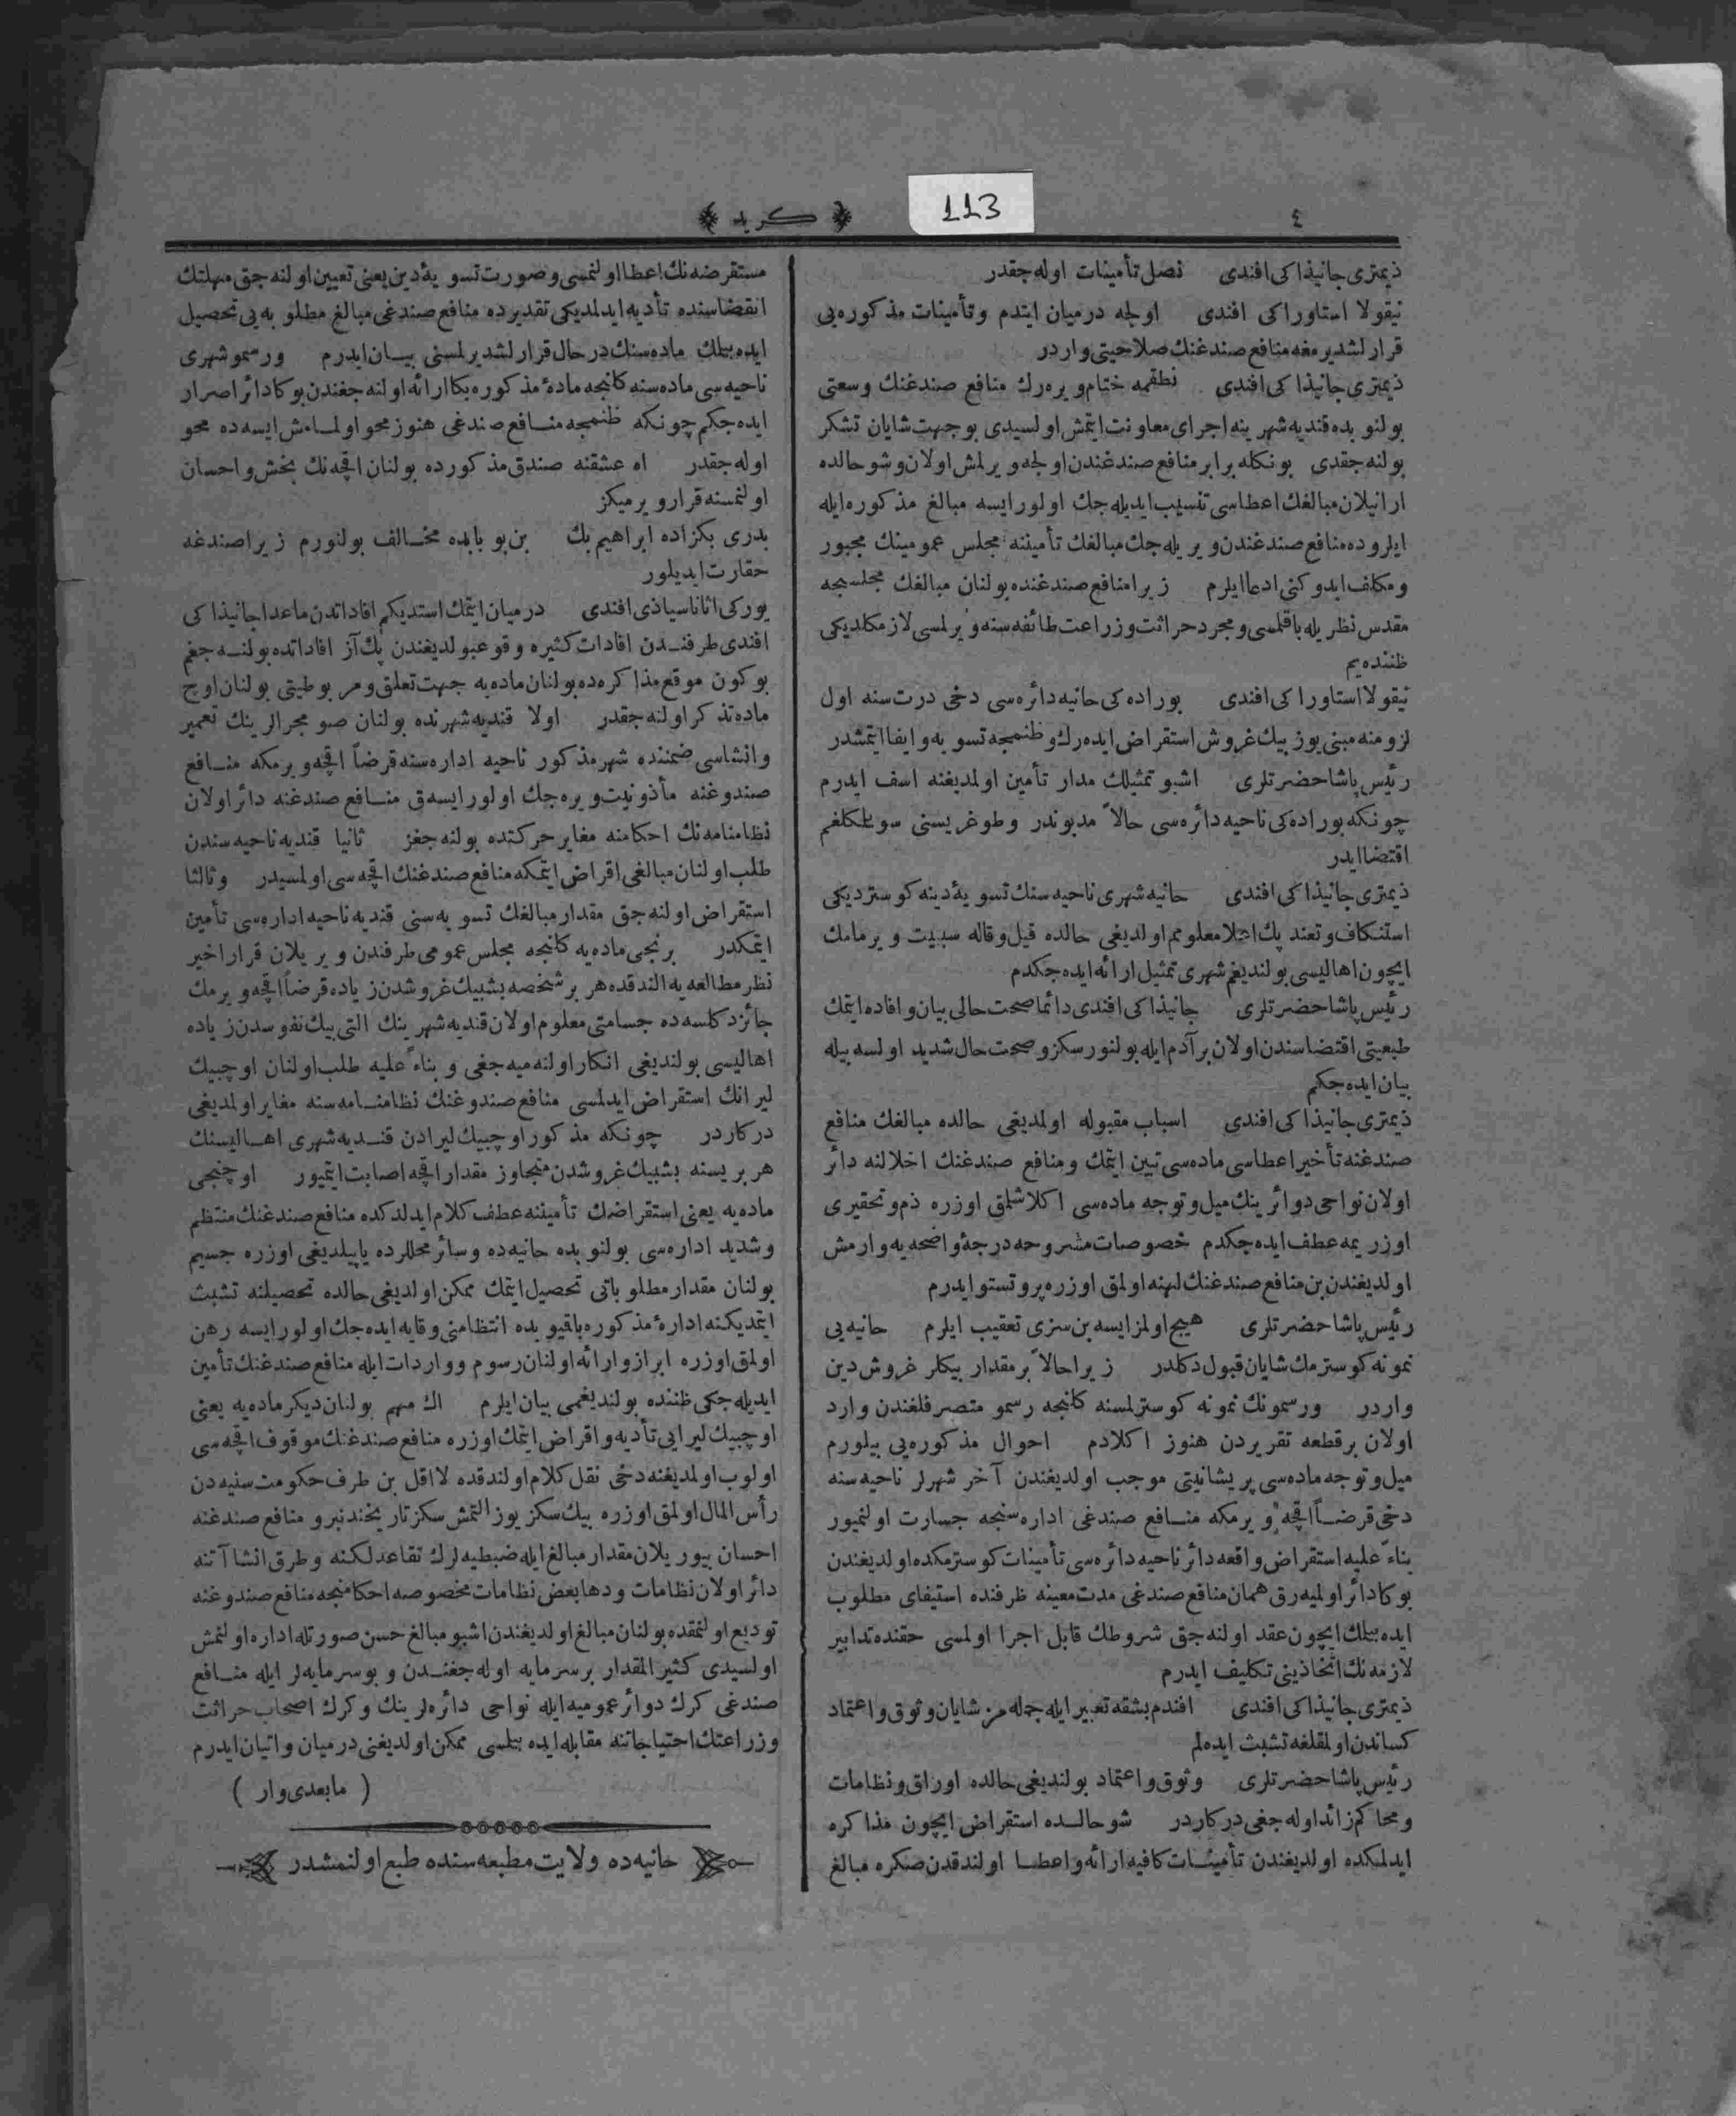 ٤
113
﴿ كريد ﴾
ذيمتری جانيذاكی افندی نصل تأمينات اوله‌جقدر
نيقولا استاوراكی افندی اولجه درميان ايتدم وتأمينات مذكوره‌يی
قرارلشديرمغه منافع صندغنك صلاحيتی واردر
ذيمتری جانيذاكی افندی نطقمه ختام ويره‌رك منافع صندغنك وسعتی
بولنوبده قنديه شهرينه اجرای معاونت ايتمش اولسيدی بوجهت شايان تشكر
بولنه‌جقدی بونكله برابر منافع صندغندن اولجه ويرلمش اولان وشوحالده
ارانيلان مبالغك اعطاسی تنسيب ايديله‌جك اولورايسه مبالغ مذكوره‌ايله
ايلروده منافع صندغندن ويريله‌جك مبالغك تأميننه مجلس عمومينك مجبور
ومكلف ايدوكنی ادعا ايلرم زيرا منافع صندغنده بولنان مبالغك مجلسجه
مقدس نظريله باقلمسی ومجرد حراثت وزراعت طائفه‌سنه ويرلمسی لازمكلديكی
ظننده‌يم
نيقولا استاوراكی افندی بوراده‌كی حانيه دائره‌سی دخی درت سنه اول
لزومنه مبنی يوز بيك غروش استقراض ايده‌رك وظنمجه تسويه وايفا ايتمشدر
رئيس پاشا حضرتلری اشبو تمثيلك مدار تأمين اولمديغنه اسف ايدرم
چونكه بوراده‌كی ناحيه دائره‌سی حالاً مديوندر وطوغريسنی سويلمكلكم
اقتضا ايدر
ذيمتری جانيذاكی افندی حانيه شهری ناحيه‌سنك تسويۀ دينه كوستردیكی
استنكاف وتعند پك اعلا معلوم اولديغی حالده قيل وقاله سببيت ويرمامك
ايچون اهاليسی بولنديغم شهری تمثيل ارائه ايده‌جكدم
رئيس پاشا حضرتلری جانيذاكی افندی دائما صحت حالی بيان وافاده ايتمك
طبيعتی اقتضاسندن اولان برآدم ايله بولنورسكز وصحت حال شديد اولسه بيله
بيان ايده‌جكم
ذيمتری جانيذاكی افندی اسباب مقبوله اولمديغی حالده مبالغك منافع
صندغنه تأخير اعطاسی ماده‌سی تبين ايتمك ومنافع صندغنك اخلالنه دائر
اولان نواحی دوائرينك ميل وتوجه ماده‌سی اكلاشلمق اوزره ذم وتحقيری
اوزريمه عطف ايده‌جكدم خصوصات مشروحه درجۀ واضحه‌يه وارمش
اولديغندن بن منافع صندغنك لهنه اولمق اوزره پروتستو ايدرم
رئيس پاشا حضرتلری هيچ اولمزايسه بن سزی تعقيب ايلرم حانيه‌يی
نمونه كوسترمك شايان قبول دكلدر زيرا حالاً برمقدار بيكلر غروش دين
واردر ورسمونك نمونه كوسترلمسنه كلنجه رسمو متصرفلغندن وارد
اولان برقطعه تقريردن هنوز اكلادم احوال مذكوره‌يی بيلورم
ميل وتوجه ماده‌سی پريشانيتی موجب اولديغندن آخر شهرلر ناحيه‌سنه
دخی قرضاً اقچه ويرمكه منافع صندغی اداره‌سنجه جسارت اولنميور
بناءً عليه استقراض واقعه دائر ناحيه دائره‌سی تأمينات كوسترمكده اولديغندن
بوكا دائر اولميه‌رق همان منافع صندغی مدت معينه ظرفنده استيفای مطلوب
ايده‌بيلمك ايچون عقد اولنه‌جق شروطك قابل اجرا اولمسی حقنده تدابير
لازمه‌نك اتخاذينی تكليف ايدرم
ذيمتری جانيذاكی افندی افندم بشقه تعبير ايله جمله‌مز شايان وثوق واعتماد
كساندن اولمقلغه تشبث ايده‌لم
رئيس پاشا حضرتلری وثوق واعتماد بولنديغی حالده اوراق ونظامات
ومحاكم زائد اوله‌جغی دركاردر شوحالده استقراض ايچون مذاكره
ايدلمكده اولديغندن تأمينات كافيه ارائه واعطا اولندقدن صكره مبالغ
مستقرضه‌نك اعطا اولنمسی وصورت تسويۀ دين يعنی تعيين اولنه‌جق مهلتك
انقضاسنده تأديه ايدلمديكی تقديرده منافع صندغی مبالغ مطلوبه‌يی تحصيل
ايده‌بيلمك ماده‌سنك درحال قرارلشديرلمسنی بيان ايدرم ورسمو شهری
ناحيه‌سی ماده‌سنه كلنجه مادۀ مذكوره بكا ارائه اولنه‌جغندن بوكا دائر اصرار
ايده‌جكم چونكه ظنمجه منافع صندغی هنوز محو اولمامش ايسه‌ده محو
اوله‌جقدر اه عشقنه صندق مذكورده بولنان اقچه‌نك بخش واحسان
اولنمسنه قرار ويرميكز
بدری بكزاده ابراهيم بك بن بوبابده مخالف بولنورم زيرا صندغه
حقارت ايديلور
يوركی اثاناسياذی افندی درميان ايتمك استديكم افاداتدن ماعدا جانيذاكی
افندی طرفندن افادات كثيره وقوعبولديغندن پك آز افاداتده بولنه‌جغم
بوكون موقع مذاكره‌ده بولنان ماده‌يه جهت تعلق ومربوطيتی بولنان اوچ
ماده تذكر اولنه‌جقدر اولا قنديه شهرنده بولنان صو مجرالرينك تعمير
وانشاسی ضمننده شهر مذكور ناحيه اداره‌سنه قرضاً اقچه ويرمكه منافع
صندوغنه مأذونيت ويره‌جك اولورايسه‌ق منافع صندغنه دائر اولان
نظامنامه‌نك احكامنه مغاير حركتده بولنه‌جغز ثانيا قنديه ناحيه‌سندن
طلب اولنان مبالغی اقراض ايتمكه منافع صندغنك اقچه‌سی اولمسيدر وثالثا
استقراض اولنه‌جق مقدار مبالغك تسويه‌سنی قنديه ناحيه اداره‌سی تأمين
ايتمكدر برنجی ماده‌يه كلنجه مجلس عمومی طرفندن ويريلان قرار اخير
نظر مطالعه‌يه الندقده هر برشخصه بشبيك غروشدن زياده قرضاً اقچه ويرمك
جائز دكلسه‌ده جسامتی معلوم اولان قنديه شهرينك التی بيك نفوسدن زياده
اهاليسی بولنديغی انكار اولنه‌ميه‌جغی وبناءً عليه طلب اولنان اوچبيك
ليرانك استقراض ايدلمسی منافع صندوغنك نظامنامه‌سنه مغاير اولمديغی
دركاردر چونكه مذكور اوچبيك ليرادن قنديه شهری اهاليسنك
هر بريسنه بشبيك غروشدن متجاوز مقدار اقچه اصابت ايتميور اوچنجی
ماده‌يه يعنی استقراضك تأميننه عطف كلام ايدلدكده منافع صندغنك منتظم
وشديد اداره‌سی بولنوبده حانيه‌ده وسائر محللرده ياپيلديغی اوزره جسيم
بولنان مقدار مطلوباتی تحصيل ايتمك ممكن اولديغی حالده تحصيلنه تشبث
ايتمديكنه ادارۀ مذكوره باقيوبده انتظامنی وقايه ايده‌جك اولورايسه رهن
اولمق اوزره ابراز وارائه اولنان رسوم وواردات ايله منافع صندغنك تأمين
ايديله‌جكی ظننده بولنديغمی بيان ايلرم اك مهم بولنان ديكر ماده‌يه يعنی
اوچبيك ليرايی تأديه واقراض ايتمك اوزره منافع صندغنك موقوف اقچه‌سی
اولوب اولمديغنه دخی نقل كلام اولندقده لااقل بن طرف حكومت سنيه‌دن
رأس المال اولمق اوزره بيك سكز يوز التمش سكز تاريخندنبرو منافع صندغنه
احسان بيوريلان مقدار مبالغ ايله ضبطيه‌لرك تقاعدلكنه وطرق انشاآتنه
دائر اولان نظامات ودها بعض نظامات مخصوصه احكامنجه منافع صندوغنه
توديع اولنمقده بولنان مبالغ اولديغندن اشبو مبالغ حسن صورتله اداره اولنمش
اولسيدی كثيرالمقدار برسرمايه اوله‌جغندن وبو سرمايه‌لر ايله منافع
صندغی كرك دوائر عموميه ايله نواحی دائره‌لرينك وكرك اصحاب حراثت
وزراعتك احتياجاتنه مقابله ايده‌بيلمسی ممكن اولديغنی درميان واتيان ايدرم
( مابعدی وار )
حانيه‌ده ولايت مطبعه‌سنده طبع اولنمشدر